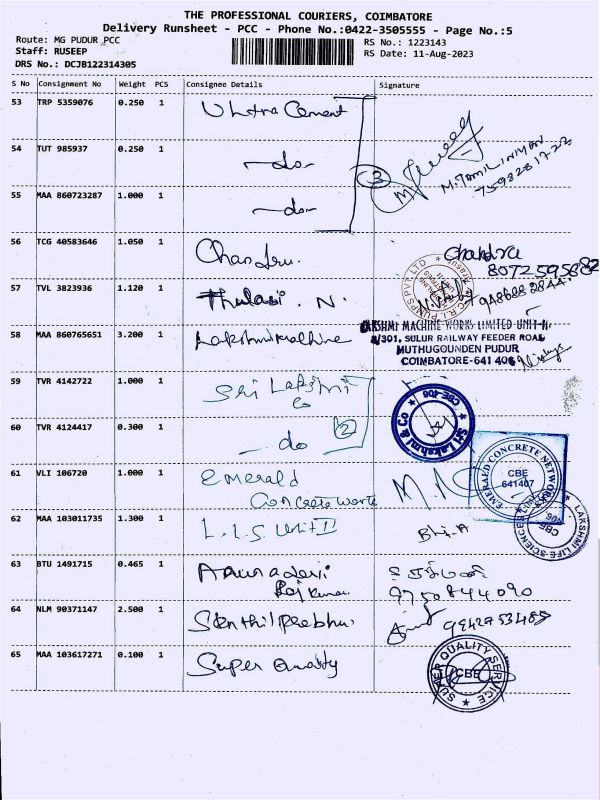 THE PROFESSIONAL COURIERS, COIMBATORE
Delivery Runsheet - PCC - Phone No.:0422-3505555 - Page No.:5
Route: MG PUDUR PCC
Staff: RUSEEP
DRS No.: DCJB122314305
RS No.: 1223143
RS Date: 11-Aug-2023
S No Consignment No Weight PCS Consignee Details Signature
53 TRP 5359076 0.250 1 Ultra Cement
54 TUT 985937 0.250 1 -do-
3
M. TAMILINIYAN
7598281722
55 MAA 860723287 1.000 1 -do-
56 TCG 40583646 1.050 1 Chandru. Chandra
8072595882
57 TVL 3823936 1.120 1 Thulasi . N.
58 MAA 860765651 3.200 1 Lakshmi Machine
LAKSHMI MACHINE WORKS LIMITED UNIT-II
SULUR RAILWAY FEEDER ROAD
MUTHUGOUNDEN PUDUR
COIMBATORE-641 406
59 TVR 4142722 1.000 1 Sri Lakshmi
Co
Sri Lakshmi & Co
CBE-406
60 TVR 4124417 0.300 1 -do 2
61 VLI 106720 1.000 1 Emerald
Concrete works
EMERALD CONCRETE NETWORKS
CBE
641407
62 MAA 103011735 1.300 1 L.L.S Unit II
LAKSHMI LIFE SCIENCES
CBE
63 BTU 1491715 0.465 1 Anuradevi
Raj Kumar
9750844090
64 NLM 90371147 2.500 1 Senthil Prabhu.
9942753485
65 MAA 103617271 0.100 1 Super Quality
SUPER QUALITY SERVICE
CBE